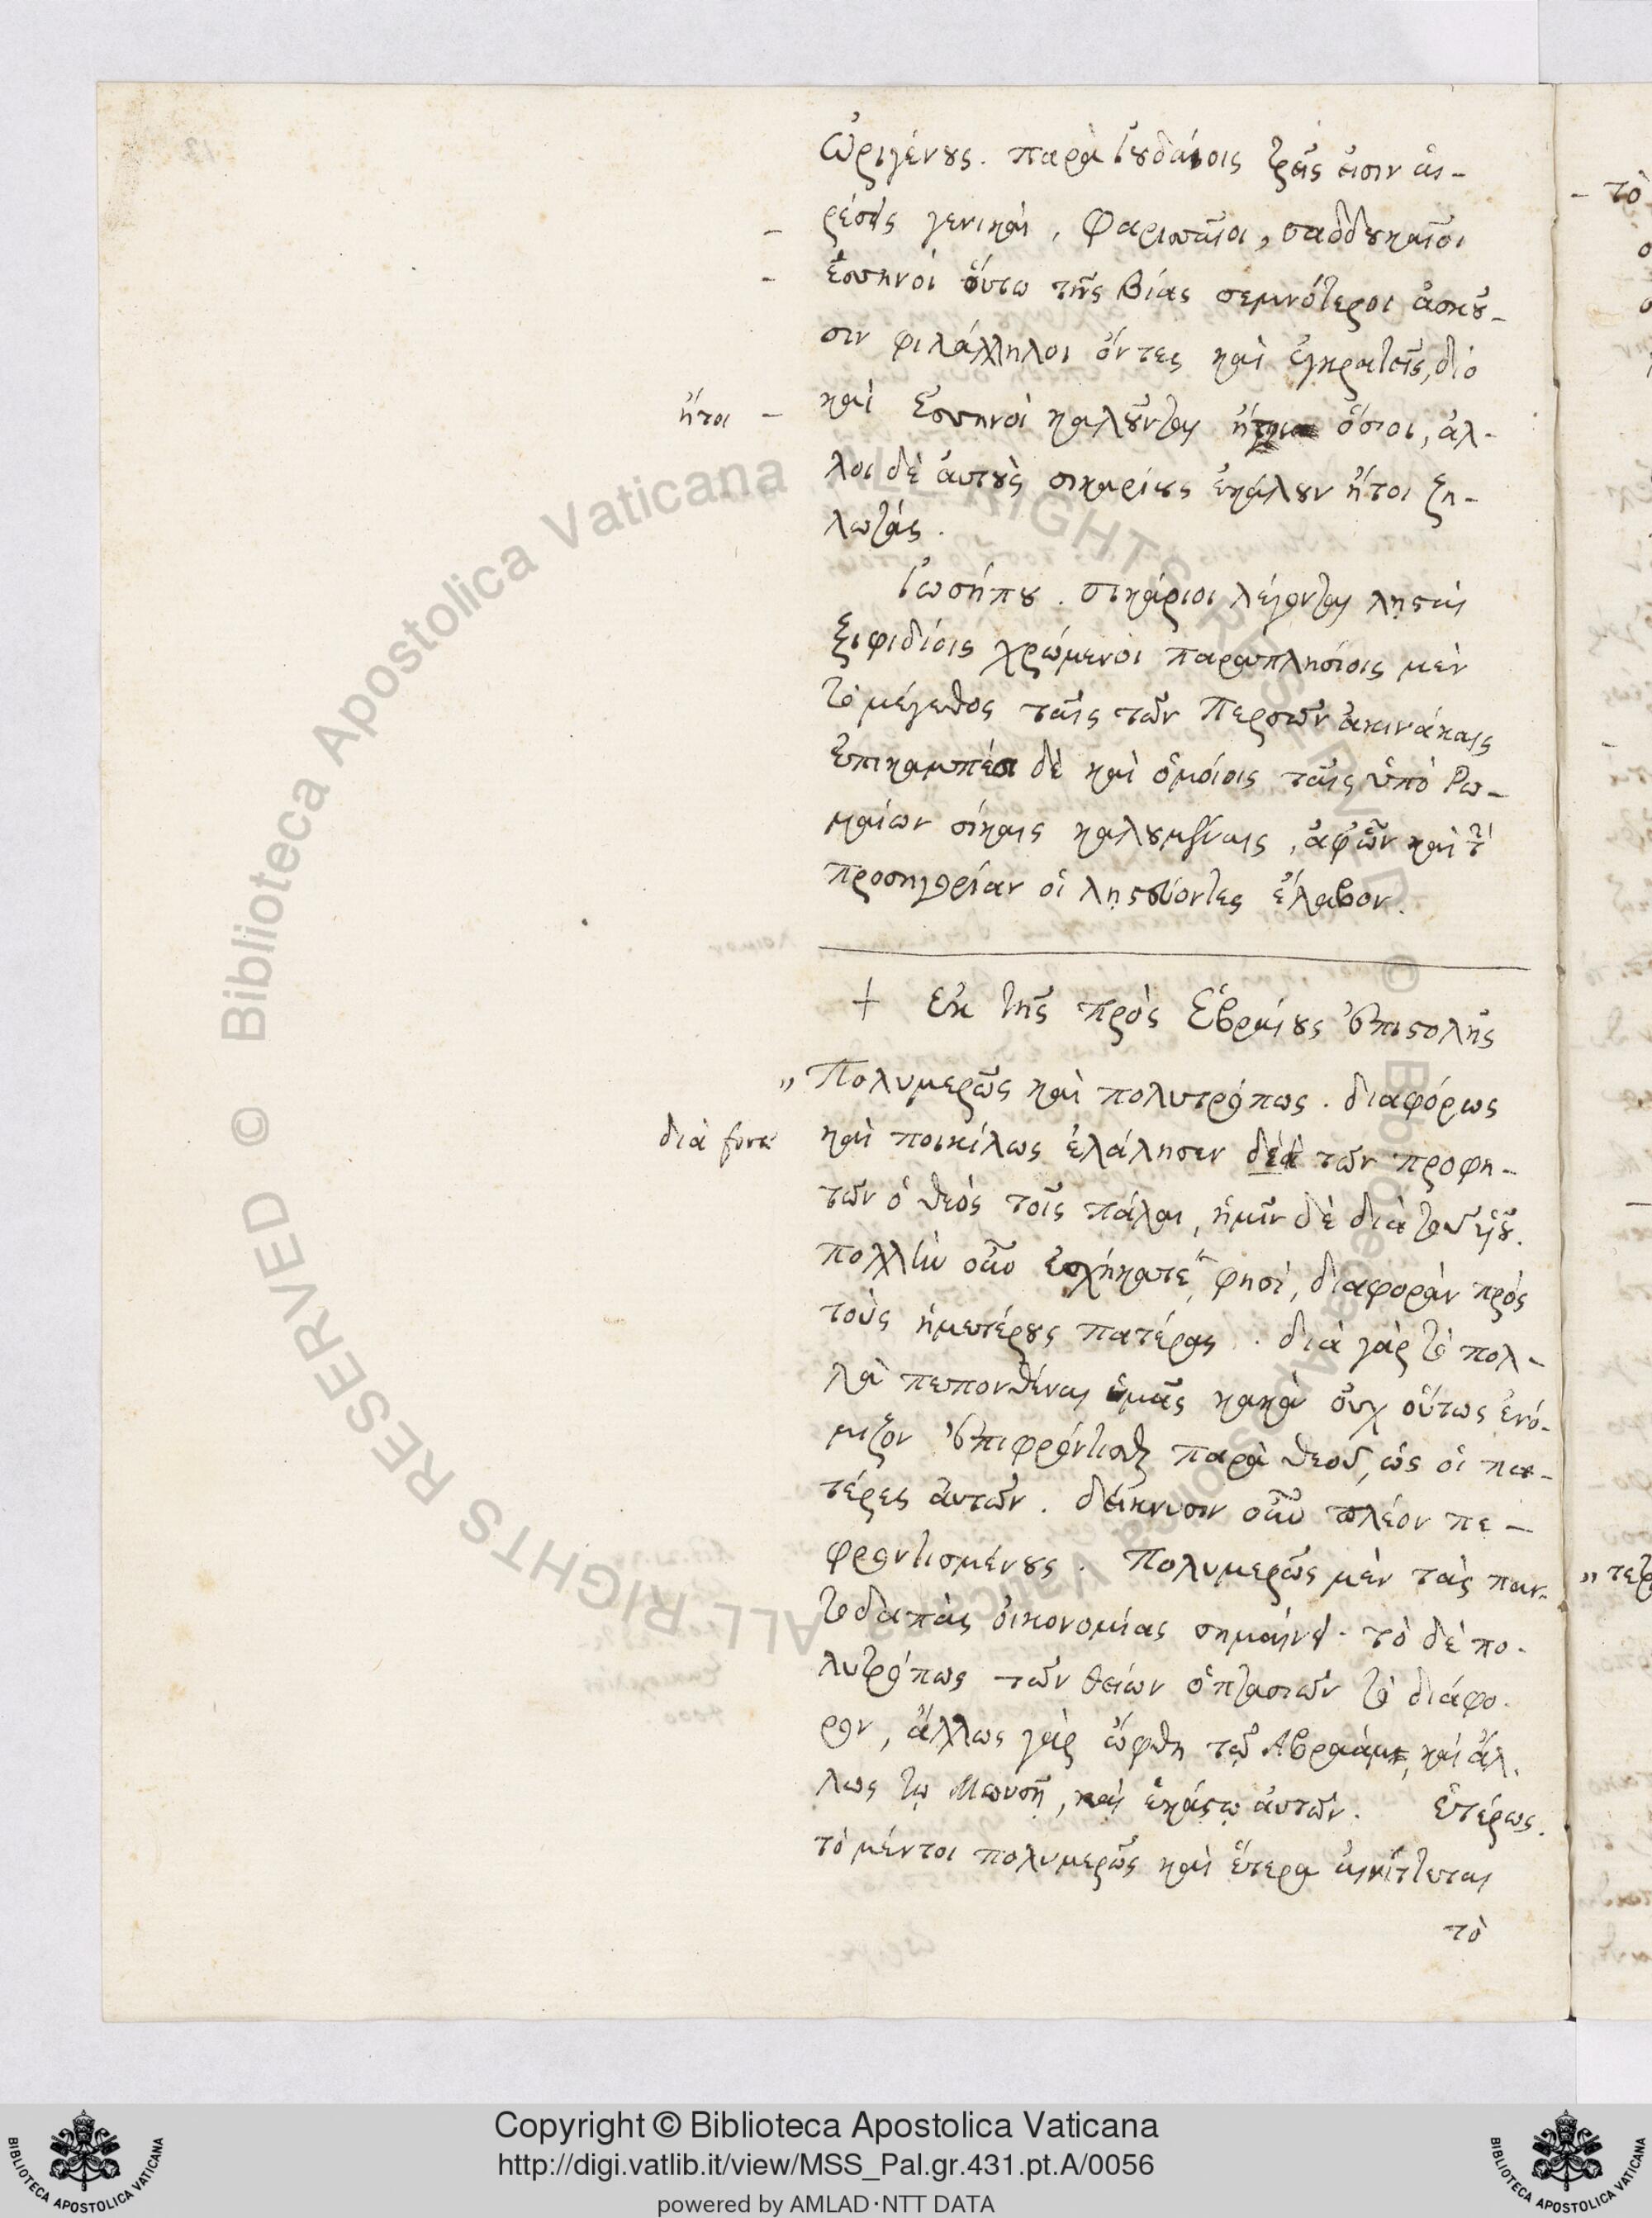 Ὠριγένους. παρὰ Ἰουδαίοις τρεῖς εἰσιν αἱ-
ρέσεις γενικαὶ, Φαρισαῖοι, σαδδουκαῖοι
Ἐσσηνοὶ οὗτοι τῆς βίας σεμνότεροι ἀσκοῦ-
σιν φιλάλληλοι ὄντες καὶ ἐγκρατεῖς, διὸ
ἤτοι - καὶ Ἐσσηνοὶ καλοῦνται ὅσιοι, ἀλ-
λοι δὲ ἀυτοὺς σικαρίους ἐκάλουν ἤτοι ζη-
λωτάς.
Ἰωσήπου. σικάριοι λέγονται λῃσταὶ
ξιφιδίοις χρώμενοι παραπλησίοις μὲν
τὸ μέγεθος ταῖς τῶν Περσῶν ἀκινάκαις
ἐπικαμπέσι δὲ καὶ ὁμοίοις ταῖς ὑπὸ Ρω-
μαίων σίκαις καλουμέναις, ἀφ' ὧν καὶ τὴν
προσηγορίαν οἱ λῃστεύοντες ἔλαβον.
+ Εκ τῆς πρὸς Ἑβραίους ἐπιστολῆς
" Πολυμερῶς καὶ πολυτρόπως. διαφόρως
διὰ forte καὶ ποικίλως ἐλάλησεν δεὰ τῶν προφη-
τῶν ὁ θεὸς τοῖς πάλαι, ἡμῖν δὲ διὰ τοῦ υἱοῦ.
πολλὴν οὖν ἐσχήκατε, φησὶ, διαφορὰν πρὸς
τοὺς ἡμετέρους πατέρας. διὰ γὰρ τὸ πολ-
λὰ πεπονθέναι ὑμᾶς κακὰ οὐχ οὕτως ἐνό-
μιζον ἐπιφροντίσθαι παρὰ θεοῦ, ὡς οἱ πα-
τέρες ἀυτῶν. δείκνυσιν οὖν πλέον πε-
φροντισμένους. Πολυμερῶς μὲν τὰς παν-
τοδαπὰς οἰκονομίας σημαίνει. τὸ δὲ πο-
λυτρόπως τῶν θείων ὀπτασιῶν τὸ διάφο-
ρον, ἄλλως γὰρ ὤφθη τῷ Αβραὰμ, καὶ ἄλ-
λως τῷ Μωυσῇ, καὶ ἑκάστῳ ἀυτῶν. Ἑτέρως.
τὸ μέντοι πολυμερῶς καὶ ἕτερα αἰνίττεται
τὸ
Copyright © Biblioteca Apostolica Vaticana
http://digi.vatlib.it/view/MSS_Pal.gr.431.pt.A/0056
powered by AMLAD·NTT DATA